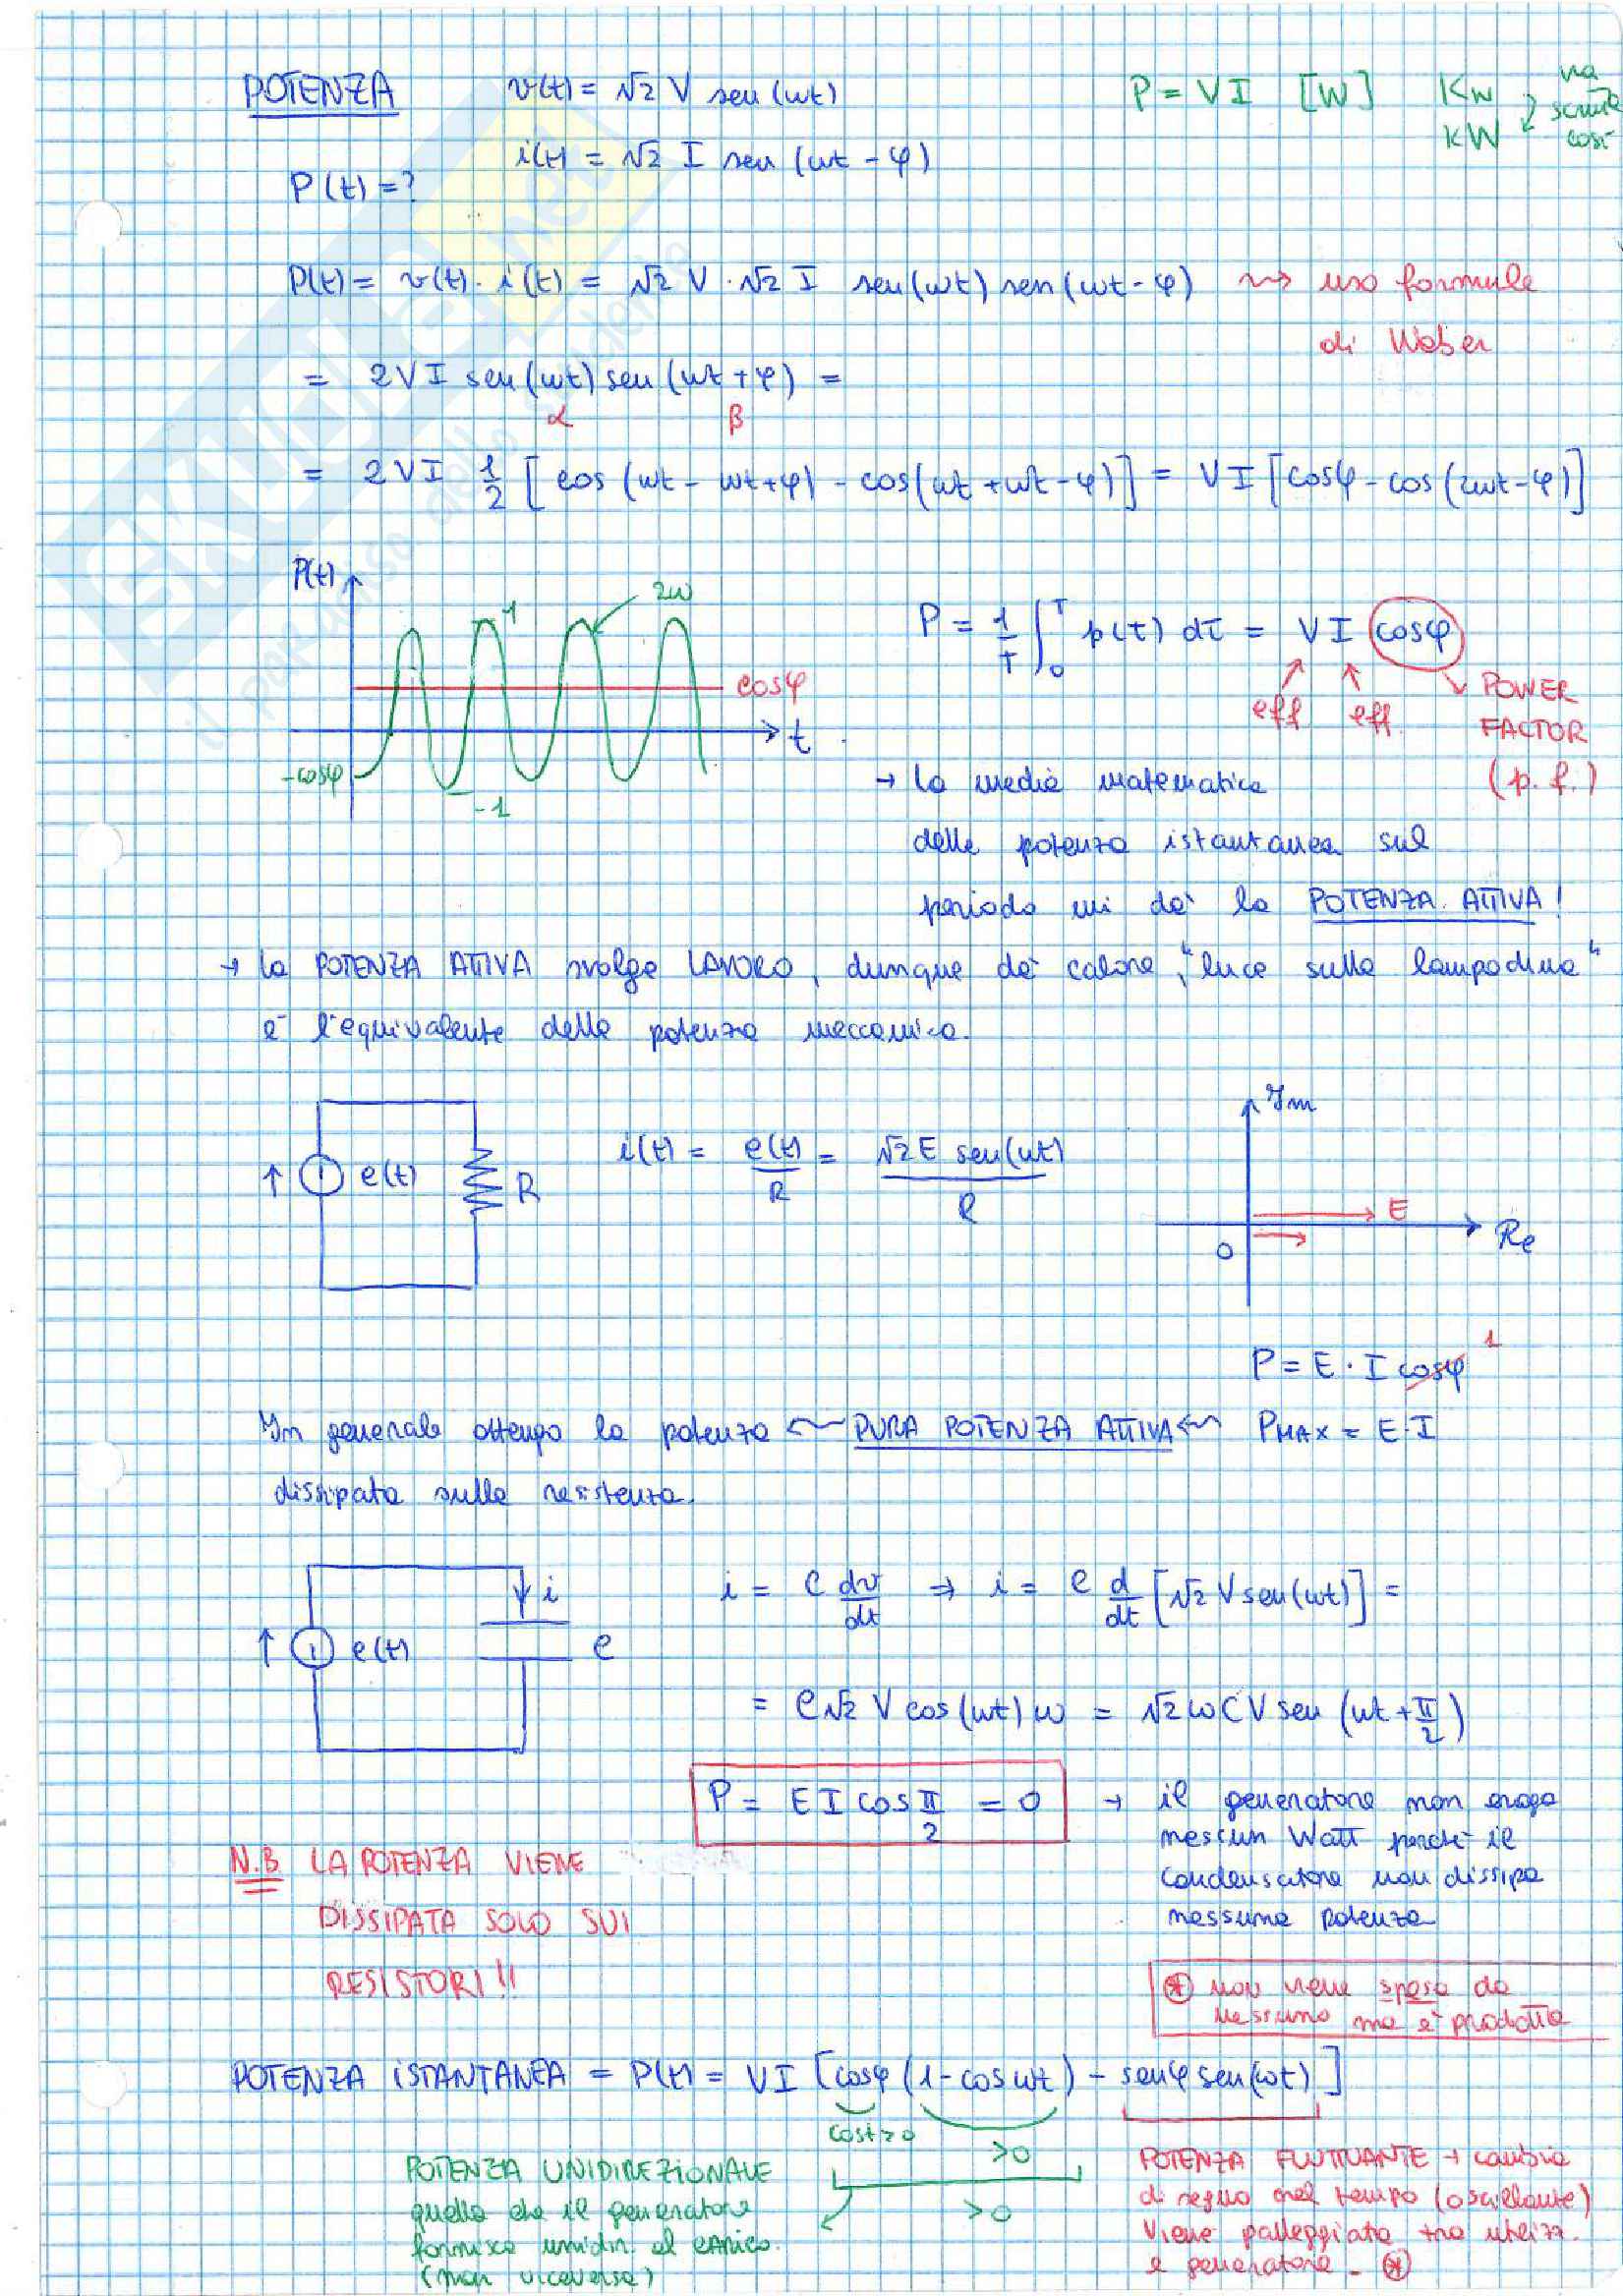 POTENZA
v(t) = √2 V sen (ωt)
P = VI [W] KW KW va scritto così
i(t) = √2 I sen (ωt - φ)
P(t) = ?
P(t) = v(t) · i(t) = √2 V · √2 I sen(ωt) sen(ωt - φ) ⇝ uso formule
di Weber
= 2VI sen(ωt) sen(ωt + φ) =
α β
= 2VI 1/2 [cos(ωt - ωt + φ) - cos(ωt + ωt - φ)] = VI [cosφ - cos(2ωt - φ)]
P(t)
1
2ω
cosφ
t
-cosφ
-1
P = 1/T ∫₀ᵀ p(τ) dτ = VI cosφ
eff eff
POWER
FACTOR
(p.f.)
→ la media matematica
della potenza istantanea sul
periodo mi dà la POTENZA ATTIVA!
→ la POTENZA ATTIVA svolge LAVORO, dunque dà calore, "luce sulla lampadina"
è l'equivalente della potenza meccanica.
↑ e(t) R
i(t) = e(t)/R = √2 E sen(ωt)/R
Im
E
0
Re
P = E · I cosφ 1
In generale ottengo la potenza ⇜ PURA POTENZA ATTIVA ⇜ PMAX = E·I
dissipata sulla resistenza.
i
↑ e(t) C
i = C dv/dt ⇒ i = C d/dt [√2 V sen(ωt)] =
= C√2 V cos(ωt) ω = √2 ωCV sen (ωt + π/2)
P = EI cos π/2 = 0 → il generatore non eroga
nessun Watt perché il
condensatore non dissipa
nessuna potenza
N.B. LA POTENZA VIENE
DISSIPATA SOLO SUI
RESISTORI!!
⊛ non viene spesa da
nessuno ma è prodotta
POTENZA ISTANTANEA = P(t) = VI [cosφ (1 - cos ωt) - senφ sen(ωt)]
cost>0
>0
>0
POTENZA UNIDIREZIONALE
quella che il generatore
fornisce unidir. al carico.
(non viceversa)
POTENZA FLUTTUANTE → cambia
di segno nel tempo (oscillante)
Viene palleggiata tra utilizz.
e generatore. ⊛
SKUOLA.net
il paradiso dello studente